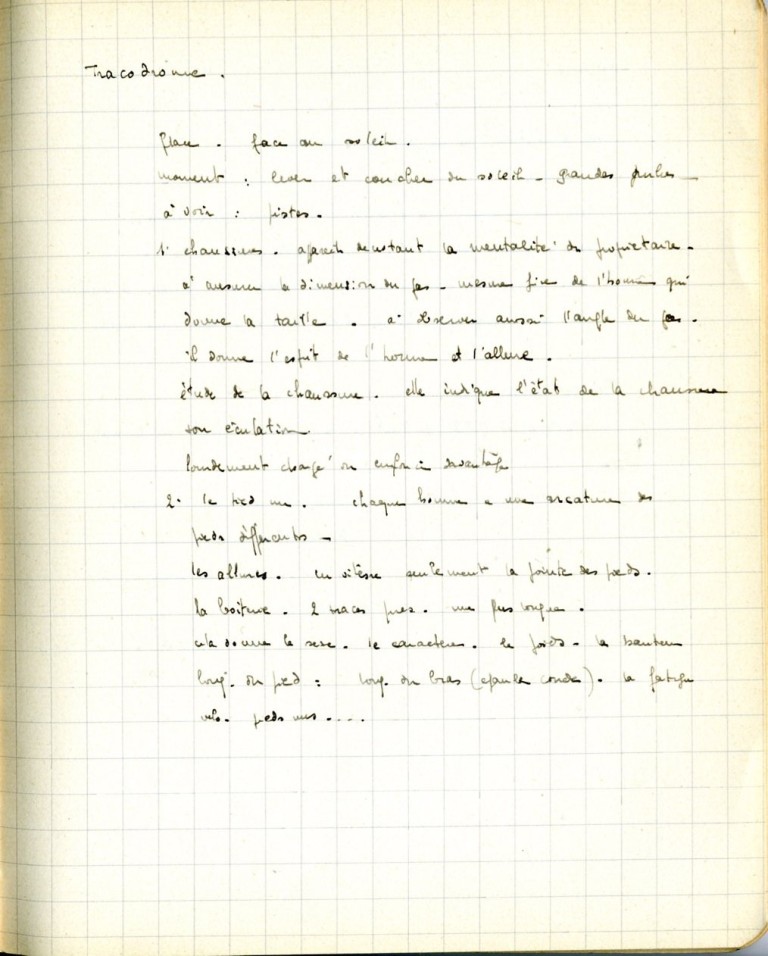 Tracodrome.
face au soleil.
moment : lever et coucher du soleil - grandes
à voir : pistes.
1. chaussures. la mentalité du propriétaire -
à mesurer la dimension du pas - mesure fixe de l'homme qui
donne la taille. à observer aussi l'angle du pas.
il donne l'esprit de l'homme et l'allure.
étude de la chaussure. elle indique l'état de la chaussure
son éculation
lourdement chargé on enfonce davantage
2. le pied nu. chaque homme a une des
pieds différentes -
les allures. en vitesse seulement la pointe des pieds.
la boiture. 2 traces une plus longue.
cela donne le sexe. le caractère. le poids - la hauteur
long. du pied : long. du bras (épaule coude). la fatigue
pieds nus ....